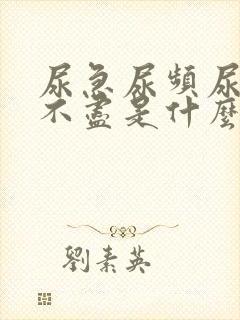 尿急尿頻尿
不盡是什麼
劉素英